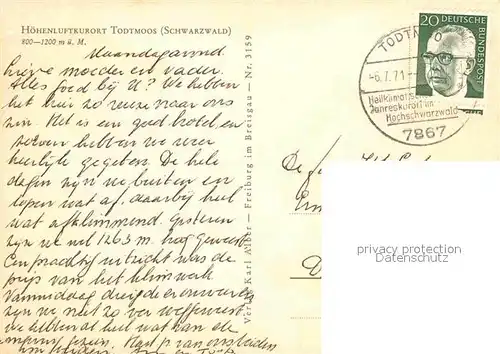 HÖHENLUFTKURORT TODTMOOS (SCHWARZWALD)
800—1200 m ü. M.
Maandagavond
Lieve moeder en vader.
Alles goed bij U? We hebben
het hier zo reuze naar ons
zin. Het is een goed hotel, en
hebben we weer
heerlijk gegeten. De hele
dagen zijn we buiten en
lopen wat af, daarbij heel
wat afklimmend. Gisteren
zijn we wel 1263 m. hoog geweest
Een prachtig uitzicht was de
prijs van het klimwerk
Vanmiddag dreigde onweer
zijn we niet zo ver weggeweest
we hebben al heel wat van de
omgeving gezien. Hart. gr. van ons beiden
en
Verlag Karl Alber — Freiburg im Breisgau — Nr. 3159
TODTMOO
-6.7.71
Heilklimat
Jahreskurort im
Hochschwarzwald
7867
20 DEUTSCHE
BUNDESPOST
De fam.
privacy protection